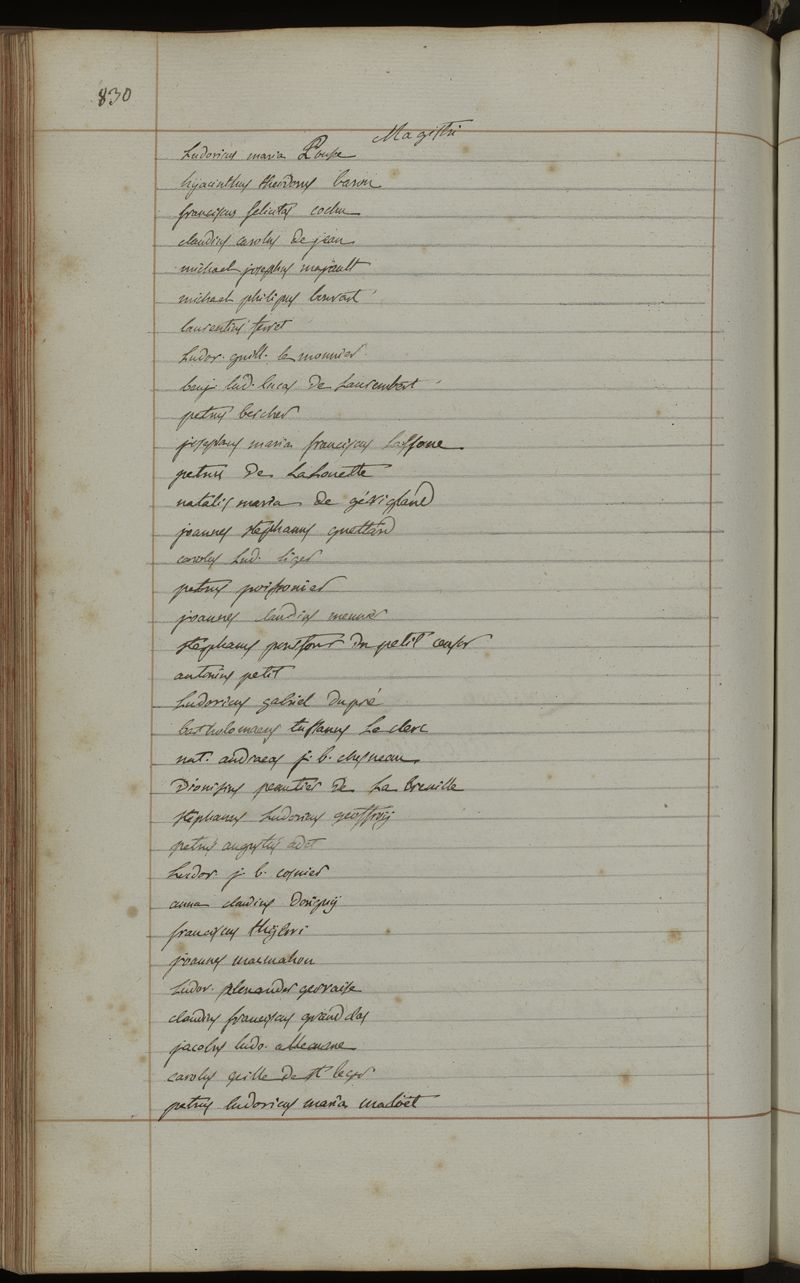 830
Magistri
Ludovicus maria Pousse
hyacinthus theodorus baron
franciscus felicitas cochu
claudius carolus de jean
michael josephus majault
michael philippus bouvart
laurentius ferret
Ludov. guill. le monnier
benj. lud. lucas de Laurembert
petrus bercher
josephus maria franciscus Lassone
petrus de Lahouette
natalis maria de gévigland
joannes stephanus guettard
carolus Lud. liger
petrus poissonier
joannes claudius
stephanus pourfour du petit
antonius petit
Ludovicus gabriel dupré
bartholomaeus tussanus Le clerc
nat. andraeas j. b. chesneau
Dionisius peautier de La breuille
stephanus Ludovicus geoffroy
petrus augustus adet
Ludov. j. b. cosnier
anna claudius dorigny
franciscus thiery
joannes macmahon
Ludov. alexander gervaise
claudius franciscus grandclas
jacobus ludo. alleaume
carolus gille de st leger
petrus ludovicus maria maloët